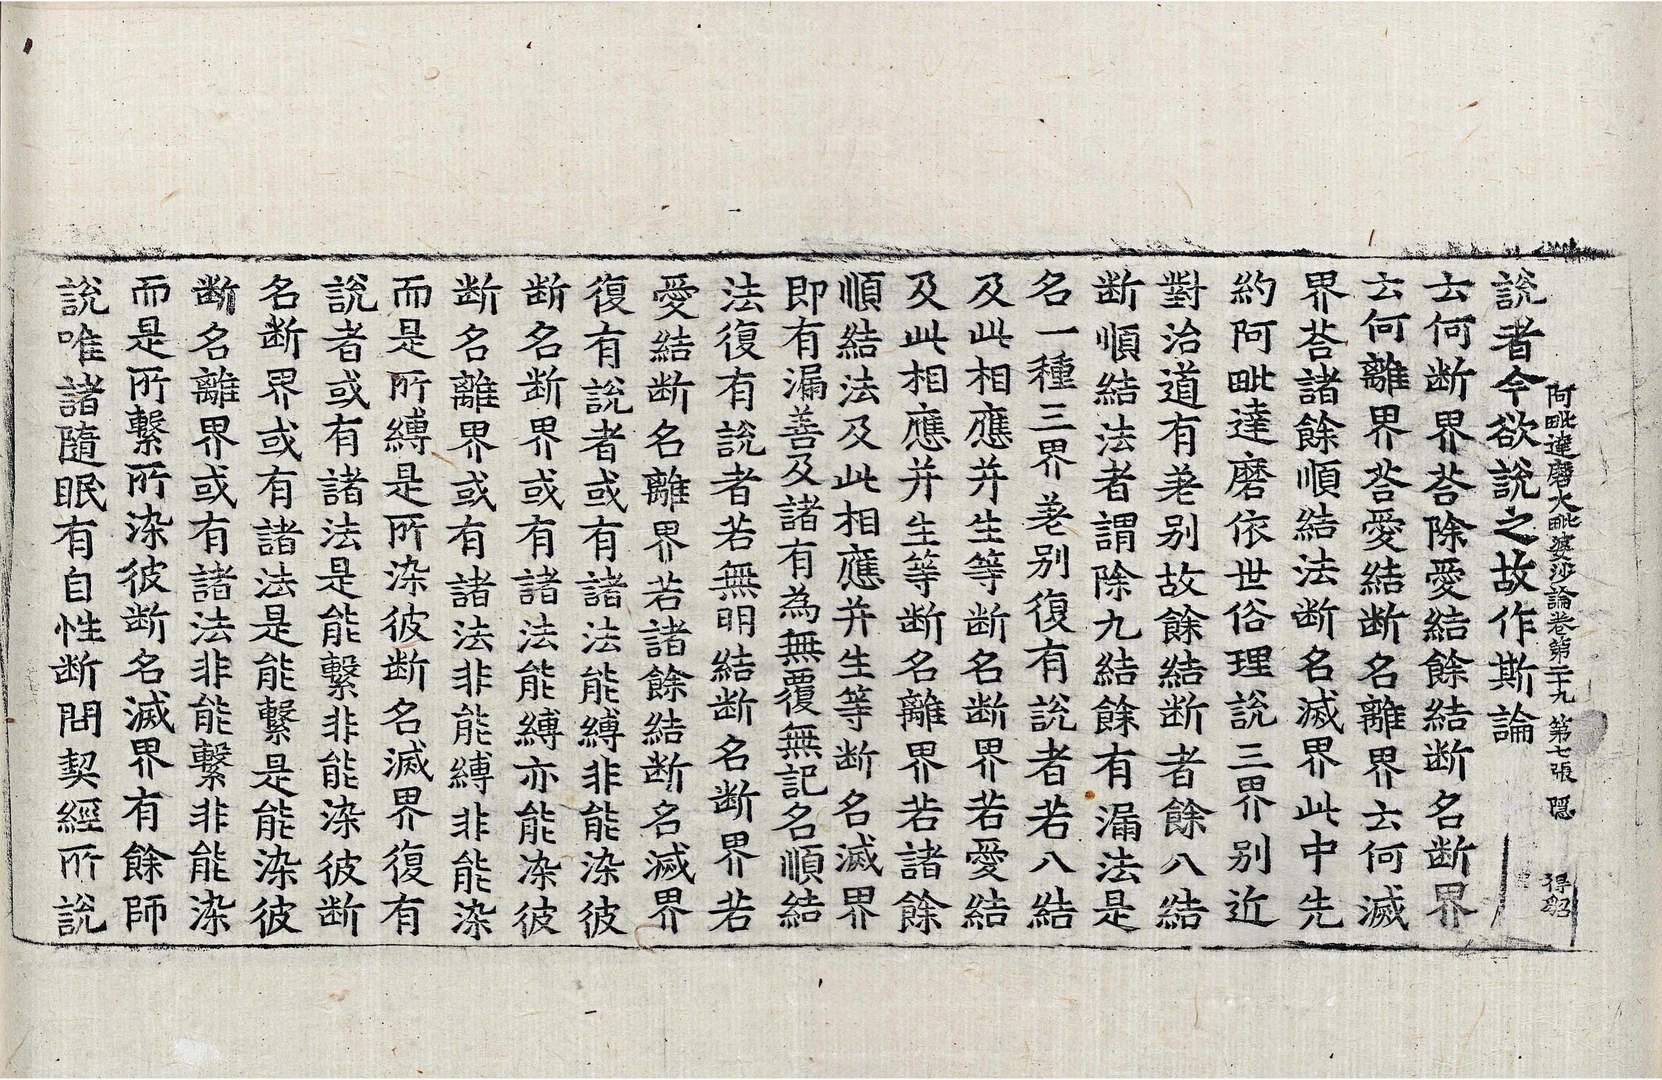 阿毗達磨大毗婆沙論卷第二十九 第七張 隱
說者今欲說之故作斯論
云何断界荅除愛結餘結断名断界
云何離界荅愛結断名離界云何滅
界荅諸餘順結法断名滅界此中先
約阿毗達磨依世俗理說三界别近
對治道有差别故餘結断者餘八結
断順結法者謂除九結餘有漏法是
名一種三界差别復有說者若八結
及此相應并生等断名断界若愛結
及此相應并生等断名離界若諸餘
順結法及此相應并生等断名滅界
即有漏善及諸有為無覆無記名順結
法復有說者若無明結断名断界若
愛結断名離界若諸餘結断名滅界
復有說者或有諸法能縛非能染彼
断名断界或有諸法能縛亦能染彼
断名離界或有諸法非能縛非能染
而是所縛是所染彼断名滅界復有
說者或有諸法是能繫非能染彼断
名断界或有諸法是能繫是能染彼
断名離界或有諸法非能繫非能染
而是所繫所染彼断名滅界有餘師
說唯諸隨眠有自性断問契經所說